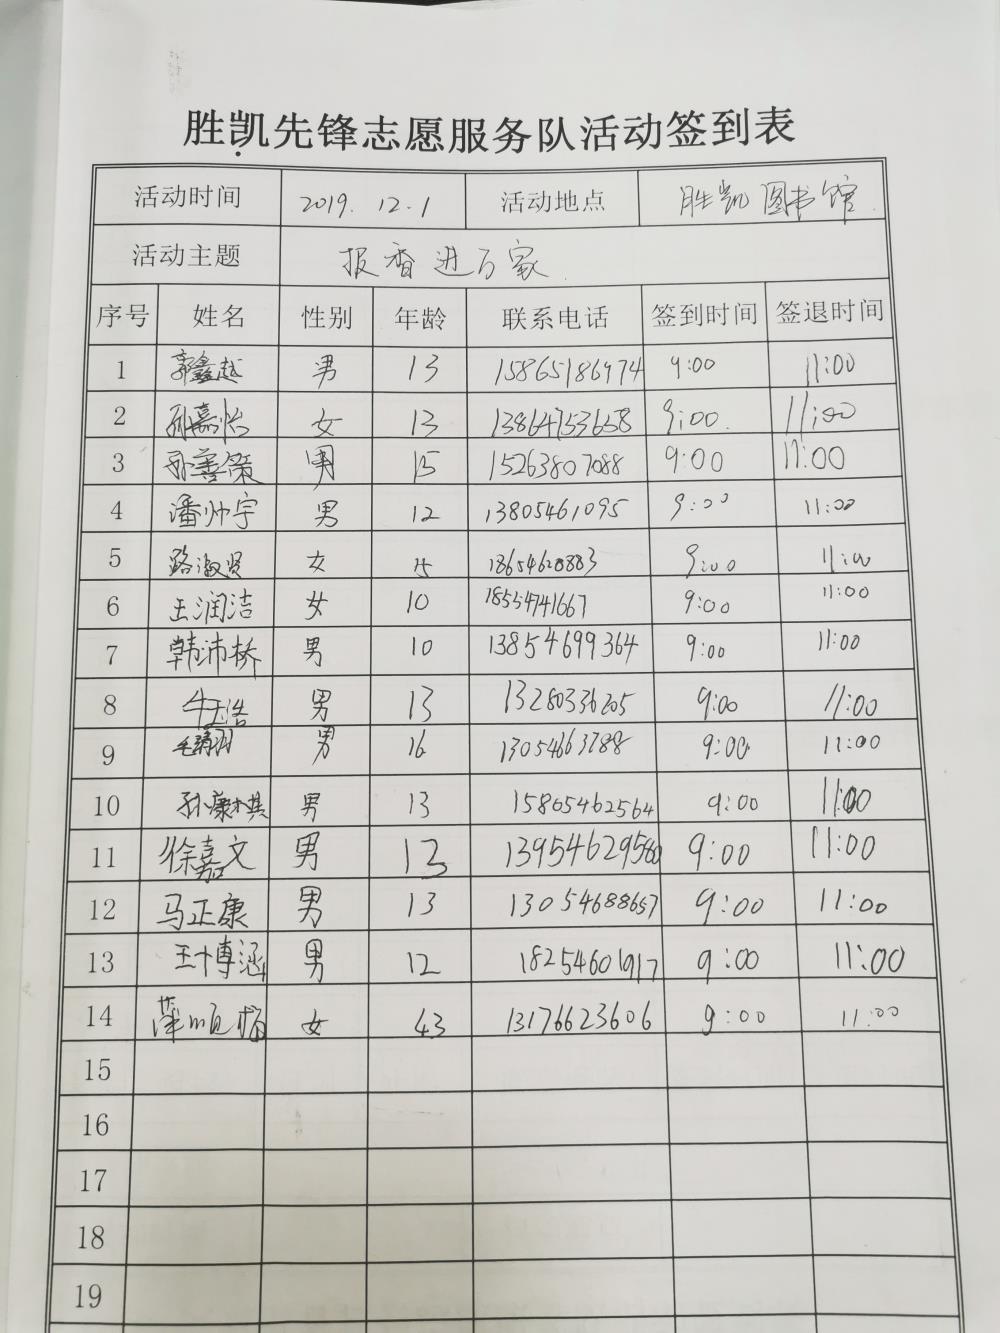 胜凯先锋志愿服务队活动签到表
活动时间 2019.12.1 活动地点 胜凯图书馆
活动主题 报香进万家
序号 姓名 性别 年龄 联系电话 签到时间 签退时间
1 郭鑫越 男 13 15865186974 9:00 11:00
2 孙嘉怡 女 13 13864753658 9:00 11:00
3 孙善策 男 15 15263807088 9:00 11:00
4 潘帅宇 男 12 13805461095 9:00 11:00
5 路淑贤 女 15 18654620883 9:00 11:00
6 王润洁 女 10 18554741667 9:00 11:00
7 韩沛桥 男 10 13854699364 9:00 11:00
8 牛玉浩 男 13 13280336205 9:00 11:00
9 毛 男 16 13054663788 9:00 11:00
10 孙康棋 男 13 15865462564 9:00 11:00
11 徐嘉文 男 13 13954629580 9:00 11:00
12 马正康 男 13 13054688657 9:00 11:00
13 王博涵 男 12 18254601917 9:00 11:00
14 女 43 13176623606 9:00 11:00
15
16
17
18
19